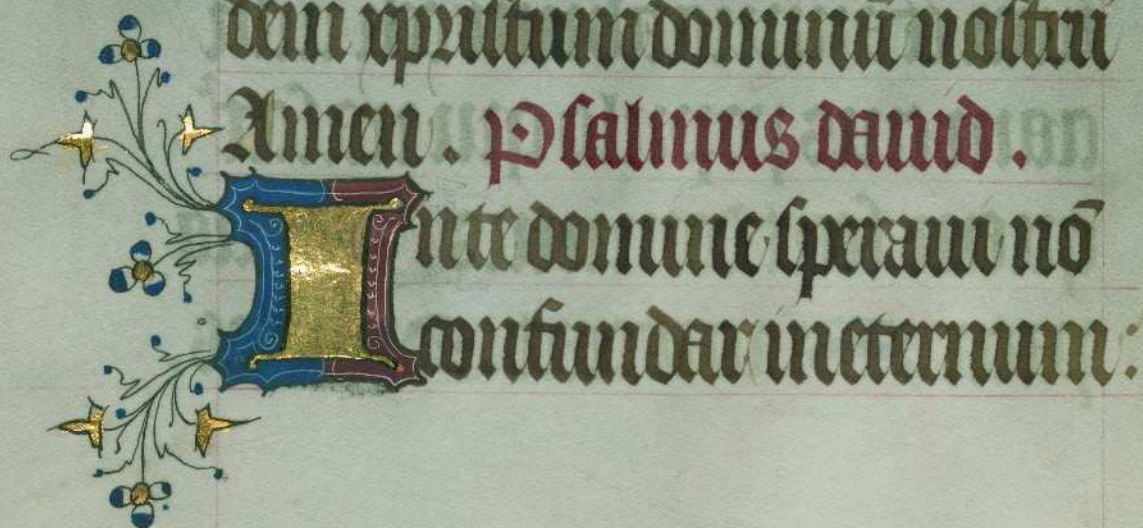 dem xpristum dominū nostrū
Amen. Psalmus dauid.
In te domine speraui nō
confundar in eternum: